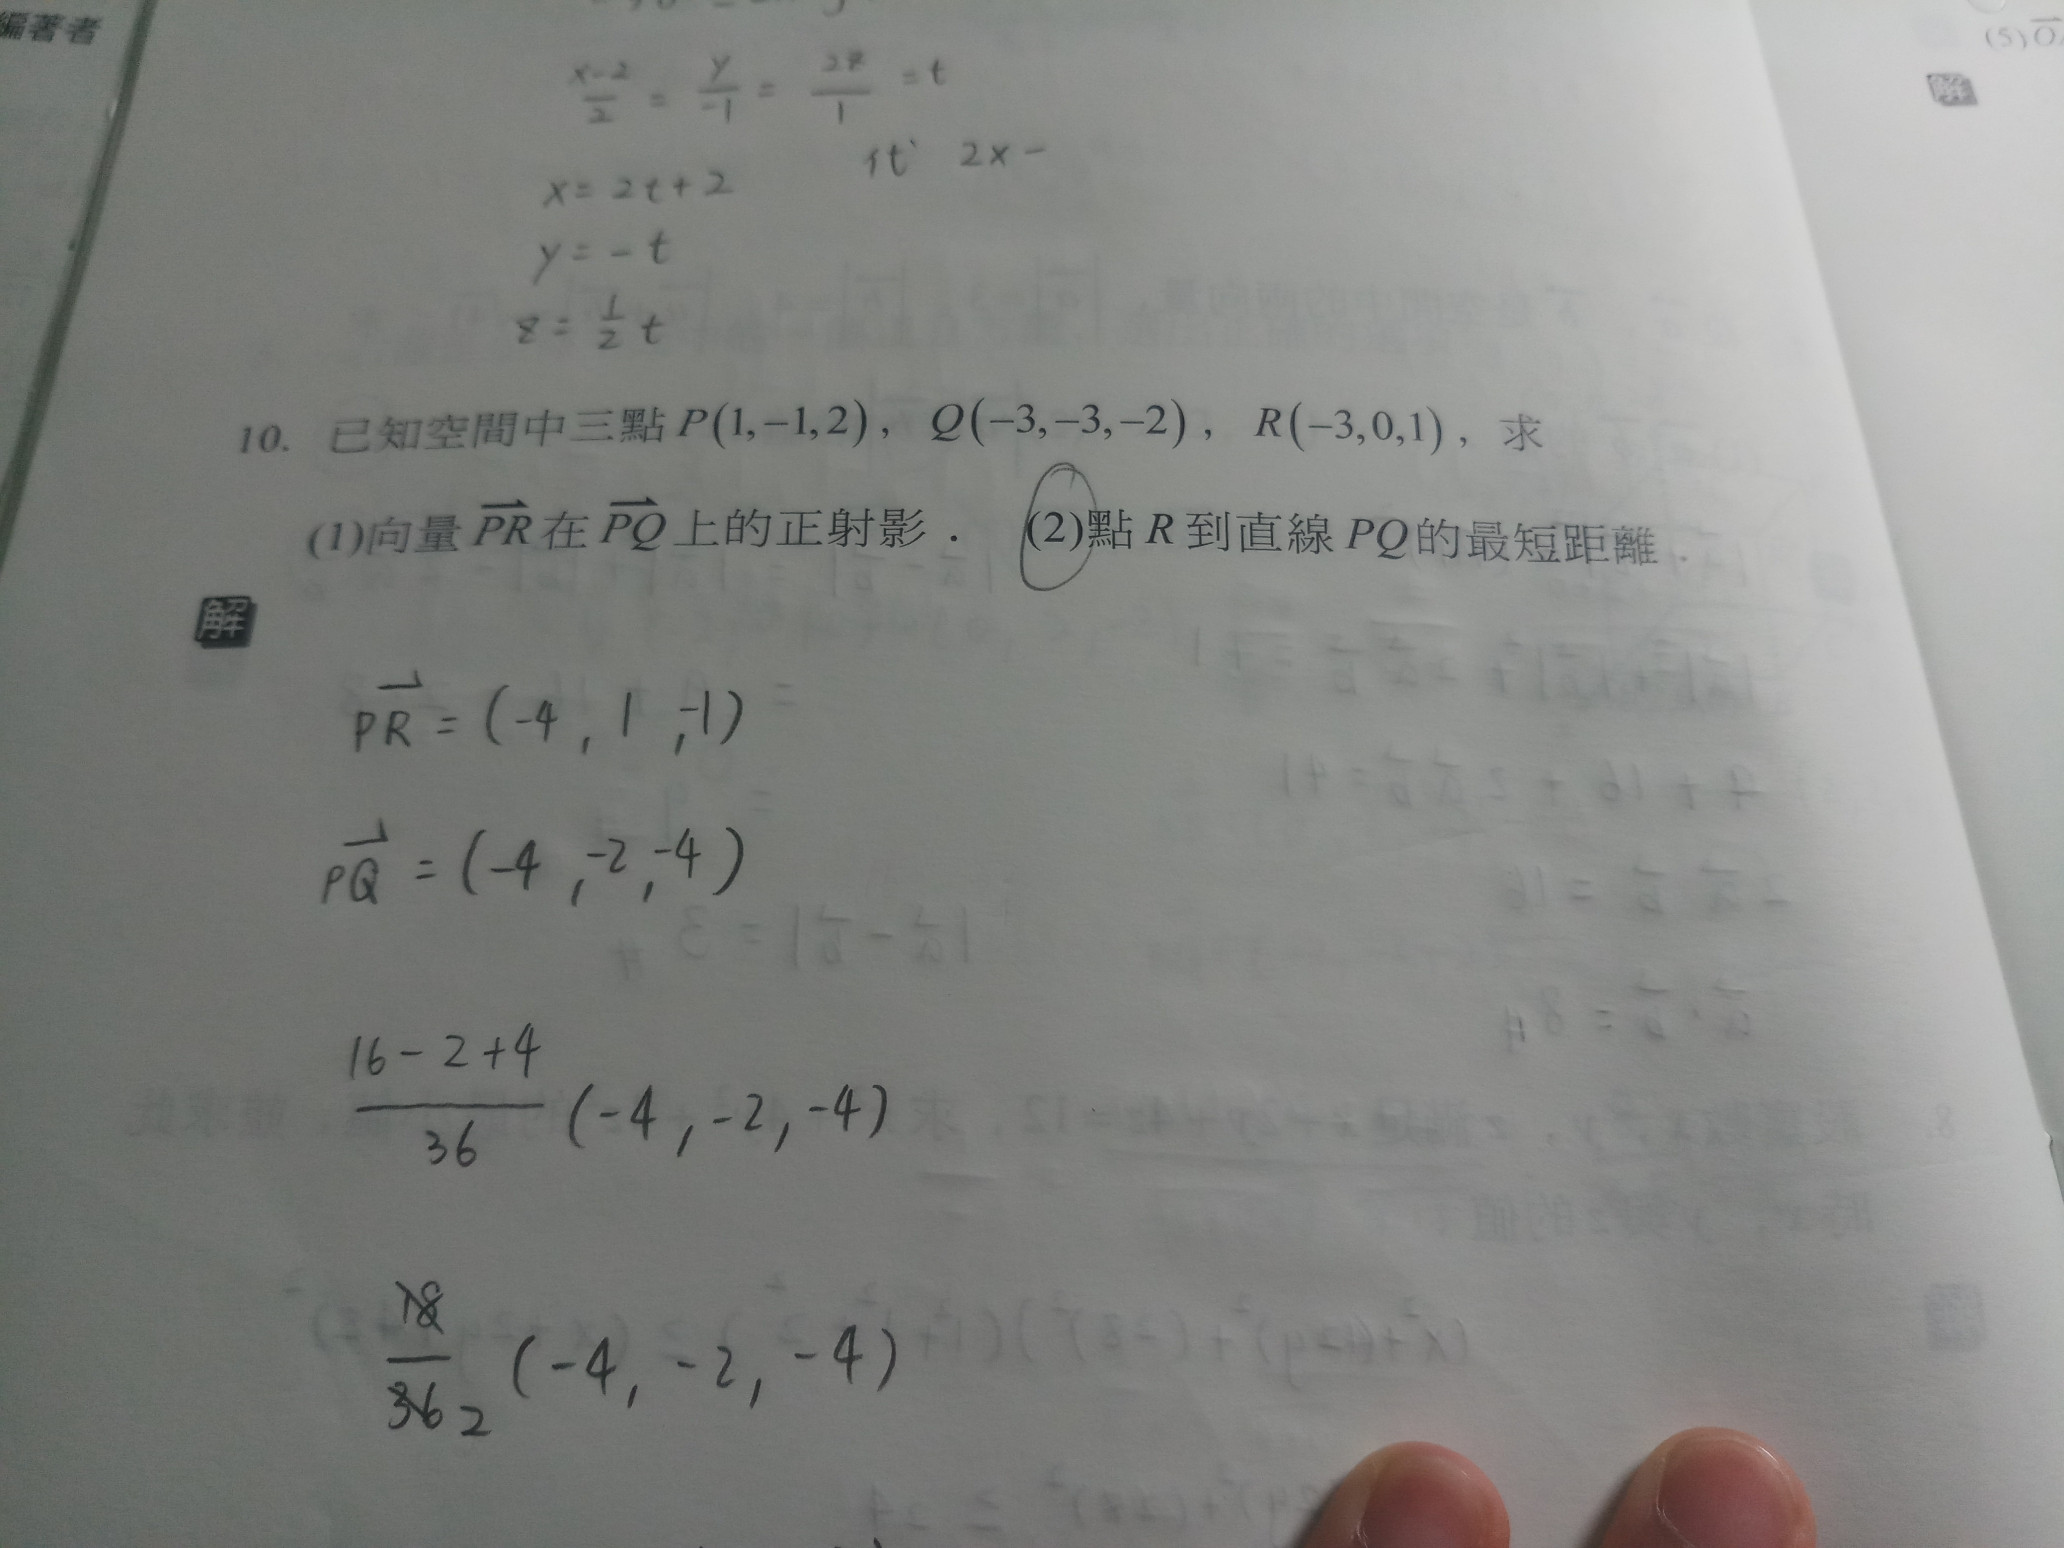 編著者
(5)
解
x-2/2 = y/-1 = 2z/1 = t
代 2x-
x = 2t+2
y = -t
z = 1/2 t
10. 已知空間中三點 P(1,-1,2), Q(-3,-3,-2), R(-3,0,1), 求
(1)向量 PR 在 PQ 上的正射影. (2)點 R 到直線 PQ 的最短距離.
解
PR = (-4, 1, -1)
PQ = (-4, -2, -4)
16-2+4/36 (-4, -2, -4)
18/36 2 (-4, -2, -4)